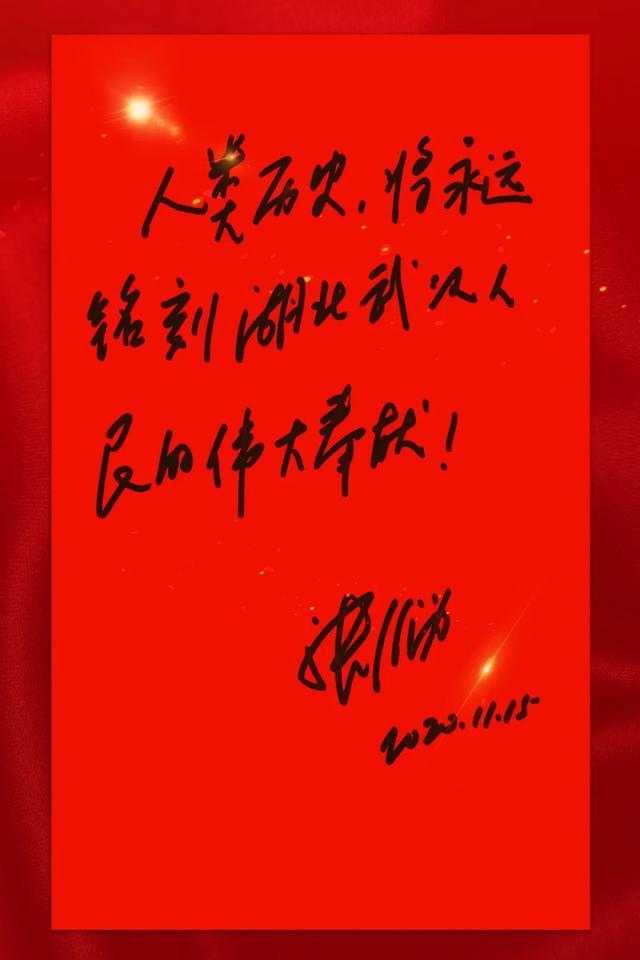 人类历史,将永远
铭刻湖北武汉人
民的伟大奉献!
2020.11.15